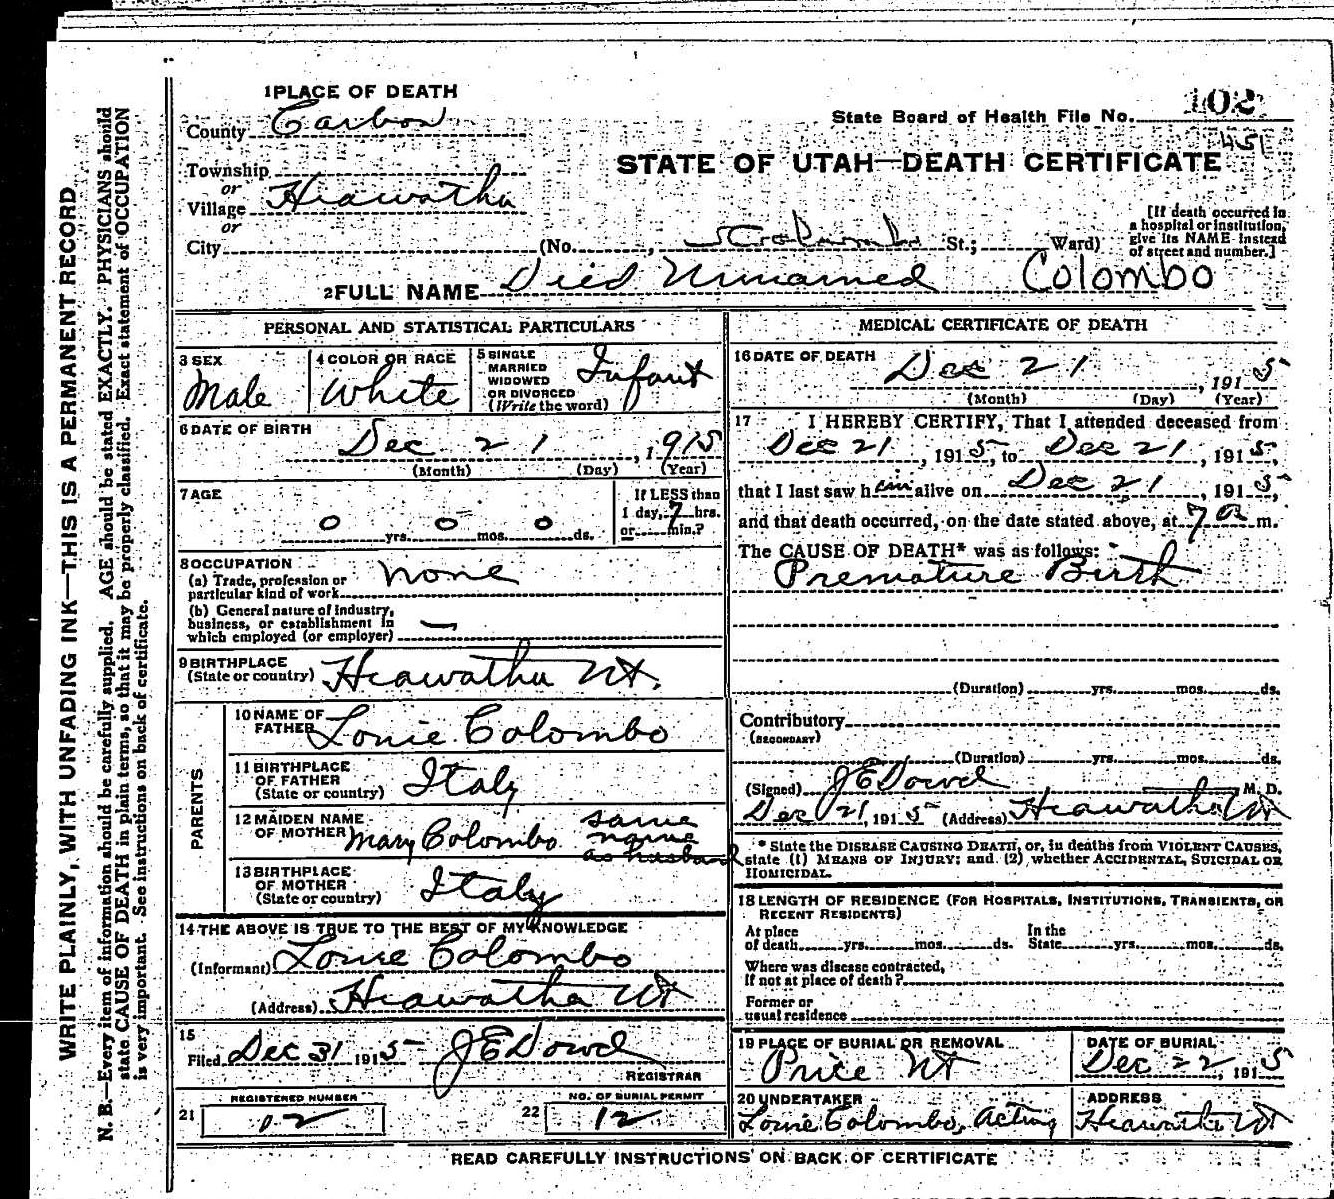 1 PLACE OF DEATH
County Carbon
State Board of Health File No. 102
451
Township
or
Village Hiawatha
or
STATE OF UTAH—DEATH CERTIFICATE
City (No. , St.; Ward)
[If death occurred in a hospital or institution, give its NAME instead of street and number.]
2 FULL NAME Died Unnamed Colombo
PERSONAL AND STATISTICAL PARTICULARS
3 SEX
Male
4 COLOR OR RACE
White
5 SINGLE
MARRIED
WIDOWED
OR DIVORCED
(Write the word)
Infant
6 DATE OF BIRTH
Dec 21, 1915
(Month) (Day) (Year)
7 AGE
0 yrs. 0 mos. 0 ds.
If LESS than
1 day, 7 hrs.
or min.?
8 OCCUPATION
(a) Trade, profession or
particular kind of work none
(b) General nature of industry,
business, or establishment in
which employed (or employer) —
9 BIRTHPLACE
(State or country) Hiawatha Ut.
PARENTS
10 NAME OF
FATHER Louie Colombo
11 BIRTHPLACE
OF FATHER
(State or country) Italy
12 MAIDEN NAME
OF MOTHER Mary Colombo same name as husband
13 BIRTHPLACE
OF MOTHER
(State or country) Italy
14 THE ABOVE IS TRUE TO THE BEST OF MY KNOWLEDGE
(Informant) Louie Colombo
(Address) Hiawatha Ut
15
Filed Dec 31 1915 J E Dowd
REGISTRAR
21 REGISTERED NUMBER
02
22 NO. OF BURIAL PERMIT
12
MEDICAL CERTIFICATE OF DEATH
16 DATE OF DEATH
Dec 21, 1915
(Month) (Day) (Year)
17 I HEREBY CERTIFY, That I attended deceased from
Dec 21, 1915, to Dec 21, 1915,
that I last saw him alive on Dec 21, 1915,
and that death occurred, on the date stated above, at 7 a m.
The CAUSE OF DEATH* was as follows:
Premature Birth
(Duration) yrs. mos. ds.
Contributory
(SECONDARY)
(Duration) yrs. mos. ds.
(Signed) J E Dowd M. D.
Dec 21, 1915 (Address) Hiawatha Ut
* State the DISEASE CAUSING DEATH, or, in deaths from VIOLENT CAUSES,
state (1) MEANS OF INJURY; and (2) whether ACCIDENTAL, SUICIDAL OR
HOMICIDAL.
18 LENGTH OF RESIDENCE (FOR HOSPITALS, INSTITUTIONS, TRANSIENTS, OR
RECENT RESIDENTS)
At place
of death yrs. mos. ds.
In the
State yrs. mos. ds.
Where was disease contracted,
If not at place of death?
Former or
usual residence
19 PLACE OF BURIAL OR REMOVAL
Price Ut
DATE OF BURIAL
Dec 22, 1915
20 UNDERTAKER
Louie Colombo, Acting
ADDRESS
Hiawatha Ut
READ CAREFULLY INSTRUCTIONS ON BACK OF CERTIFICATE
WRITE PLAINLY, WITH UNFADING INK—THIS IS A PERMANENT RECORD
N. B.—Every item of information should be carefully supplied. AGE should be stated EXACTLY. PHYSICIANS should
state CAUSE OF DEATH in plain terms, so that it may be properly classified. Exact statement of OCCUPATION
is very important. See instructions on back of certificate.